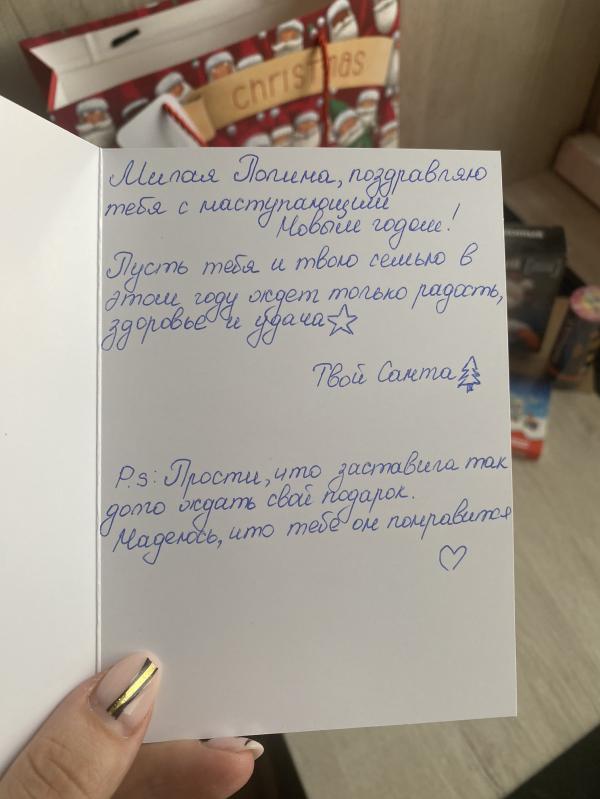 christmas
Милая Полина, поздравляю
тебя с наступающим
Новым годом!
Пусть тебя и твою семью в
этом году ждет только радость,
здоровье и удача
Твой Санта
P.s: Прости, что заставила так
долго ждать свой подарок.
Надеюсь, что тебе он понравится